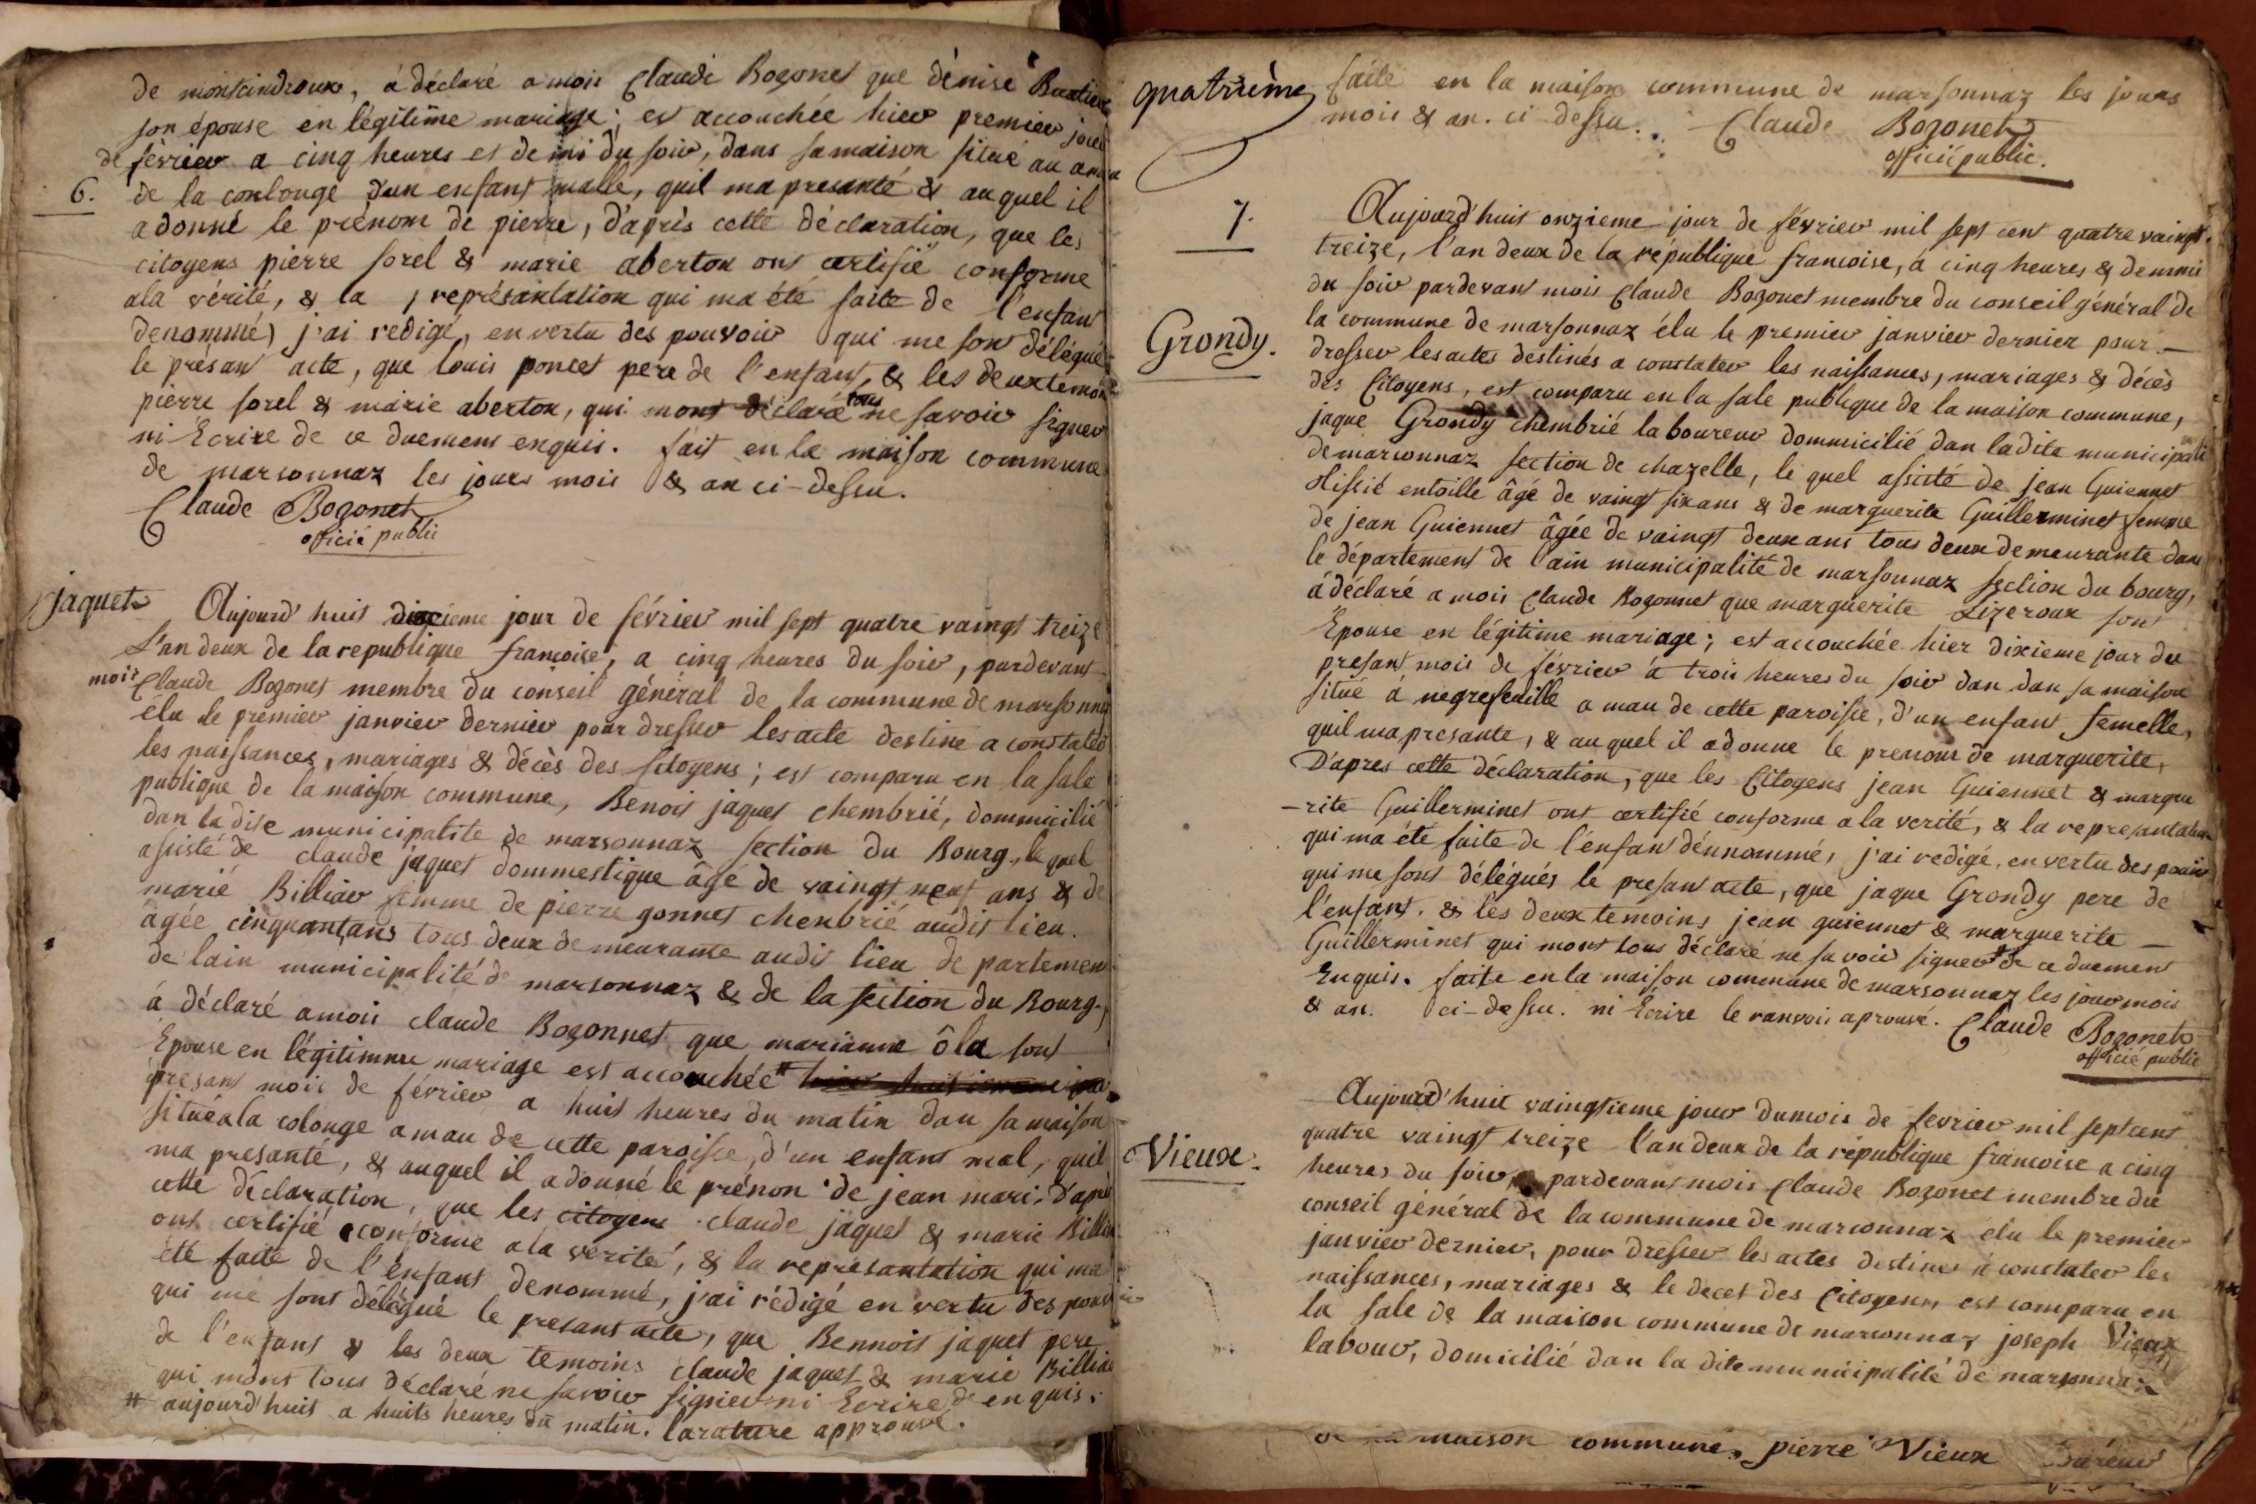 de montcindroux, á déclaré a mois Claude Bozonet que dénise
son épouse en légitime mariage; est accouchée hier premier jour
de février a cinq heures et demi du soir, dans sa maison situé au
6. de la conlonge d'un enfant malle, quil ma presanté & au quel il
a donné le prénom de pierre, d'aprés cette déclaration, que les
citoyens pierre sorel & marie aberton ont certifié conforme
ala vérité, & la représantation qui ma éte faite de l'enfant
denommé, j'ai redigé, en vertu des pouvoir qui me son délégué
le présant acte, que louis poncet pere de l'enfant, & les deux temoin
pierre sorel & marie aberton, qui mont déclaré tous ne savoir signer
ni Ecrire de ce duement enquis. fait en la maison commune
de marsonnaz les jours mois & an ci-dessu.
Claude Bozonet
officié public
jaquet
Aujourd'huit dixieme jour de février mil sept quatre vaingt treize
L'an deux de la republique francoise, a cinq heures du soir, pardevant
mois Claude Bozonet membre du conseil général de la commune de marsonnaz
élu le premier janvier dernier pour dresser les acte destine a constater
les naissances, mariages & décès des Citoyens; est comparu en la sale
publique de la maison commune, Benois jaquet chembrié, dommicilié
dan la dite municipalité de marsonnaz section du Bourg, le quel
assisté de claude jaquet dommestique âgé de vaingt neuf ans & de
marie Billiar femme de pierre gonnet chenbrié audit lieu.
âgée cinquant ans tous deux demeurante audit lieu de partement
de lain municipalité de marsonnaz & de la section du Bourg,
á déclaré amois claude Bozonnet que marianne ôla sont
Epouse en légitimme mariage est accouchée #
presant mois de février a huit heures du matin dan sa maison
situé ala colonge amau de cette paroisse, d'un enfant mal, quil
ma presanté, & auquel il a donné le prénon de jean mari. D'apré
cette déclaration, que les citoyens claude jaquet & marie Billiar
ont certifié conforme ala verité, & la represantation qui ma
été faite de l'enfant denommé, j'ai rédigé en vertu des pouvoir
qui me sont délégué le presant acte, que Bennois jaquet pere
de l'enfant & les deux temoins claude jaquet & marie Billiar
qui mont tous déclaré ne savoir signier ni Ecrire de enquis.
# aujourd'huit a huits heures du matin. larature approuvé.
quatrième
faite en la maison commune de marsonnaz les jours
mois & an. ci-dessu. Claude Bozonet
officié public.
7.
Grondy.
Aujourd'huit onzieme jour de février mil sept cent quatre vaingt
treize, l'an deux de la république francoise, á cinq heures & demmi
du soir pardevant mois Claude Bozonet membre du conseil général de
la commune de marsonnaz élu le premier janvier dernier pour
dresser les actes destinés a constater les naissances, mariages & décès
des Citoyens, est comparu en la sale publique de la maison commune,
jaque Grondy chembrié laboureur dommicilié dan ladite municipali
de marsonnaz section de chazelle, le quel assisté de jean Guiennet
tissié entoille âgé de vaingt six ans & de marguerite Guillerminet femme
de jean Guiennet âgée de vaingt deux ans tous deux demeurante dans
le département de l'ain municipalité de marsonnaz section du bourg,
á déclaré a mois Claude Bozonnet que marguerite Lizeroux son
Epouse en légitime mariage; est accouchée hier dixieme jour du
presant mois de février á trois heures du soir dan dan sa maison
situé á negrefeuille a mau de cette paroisse, d'un enfant femelle,
quil ma presante, & au quel il a donne le prenom de marguerite,
D'apres cette déclaration, que les Citoyens jean Guiennet & margue
-rite Guillerminet ont certifié conforme a la verité, & la represantation
qui ma été faite de l'enfant dénnommé, j'ai redigé, en vertu des pouvoir
qui me sont délégués le presant acte, que jaque Grondy pere de
l'enfant. & les deux temoins jean guiennet & marguerite
Guillerminet qui mont tous déclaré ne savoir signer # de ce duement
Enquis. faite en la maison commune de marsonnaz les jour mois
& an. ci-dessu. ni Ecrire le ranvois aprouvé. Claude Bozonet
officié public
Vieux.
Aujourd'huit vaingtieme jour dumois de fevrier mil sept cent
quatre vaingt treize l'an deux de la république francoise a cinq
heures du soir, pardevant mois Claude Bozonet membre du
conseil général de la commune de marsonnaz élu le premier
janvier dernier, pour dresser les actes destinés á constater les
naissances, mariages & le decet des Citoyens, est comparu en
la sale de la maison commune de marsonnaz joseph Vieux
labour, domicilié dan la dite municipalité de marsonnaz
maison commune, pierre Vieux